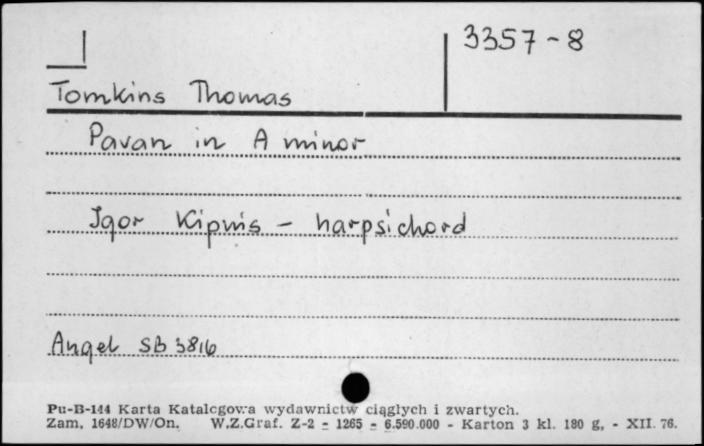 3357-8
Tomkins Thomas
Pavan in A minor
Igor Kipnis - harpsichord
Angel SB 3816
Pu-B-144 Karta Katalogowa wydawnictw ciągłych i zwartych.
Zam. 1648/DW/On. W.Z.Graf. Z-2 - 1265 - 6.590.000 - Karton 3 kl. 180 g, - XII. 76.